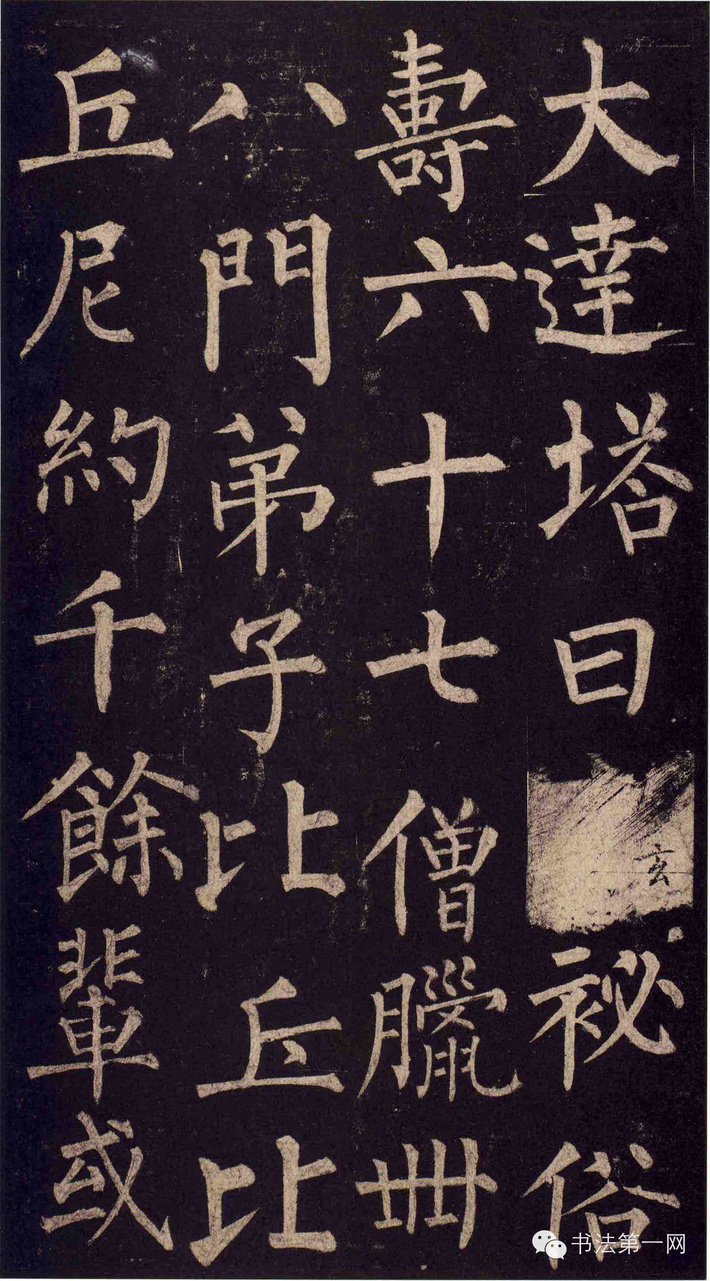 大達塔曰玄祕俗
壽六十七僧臘卌
八門弟子比丘比
丘尼約千餘輩或
书法第一网